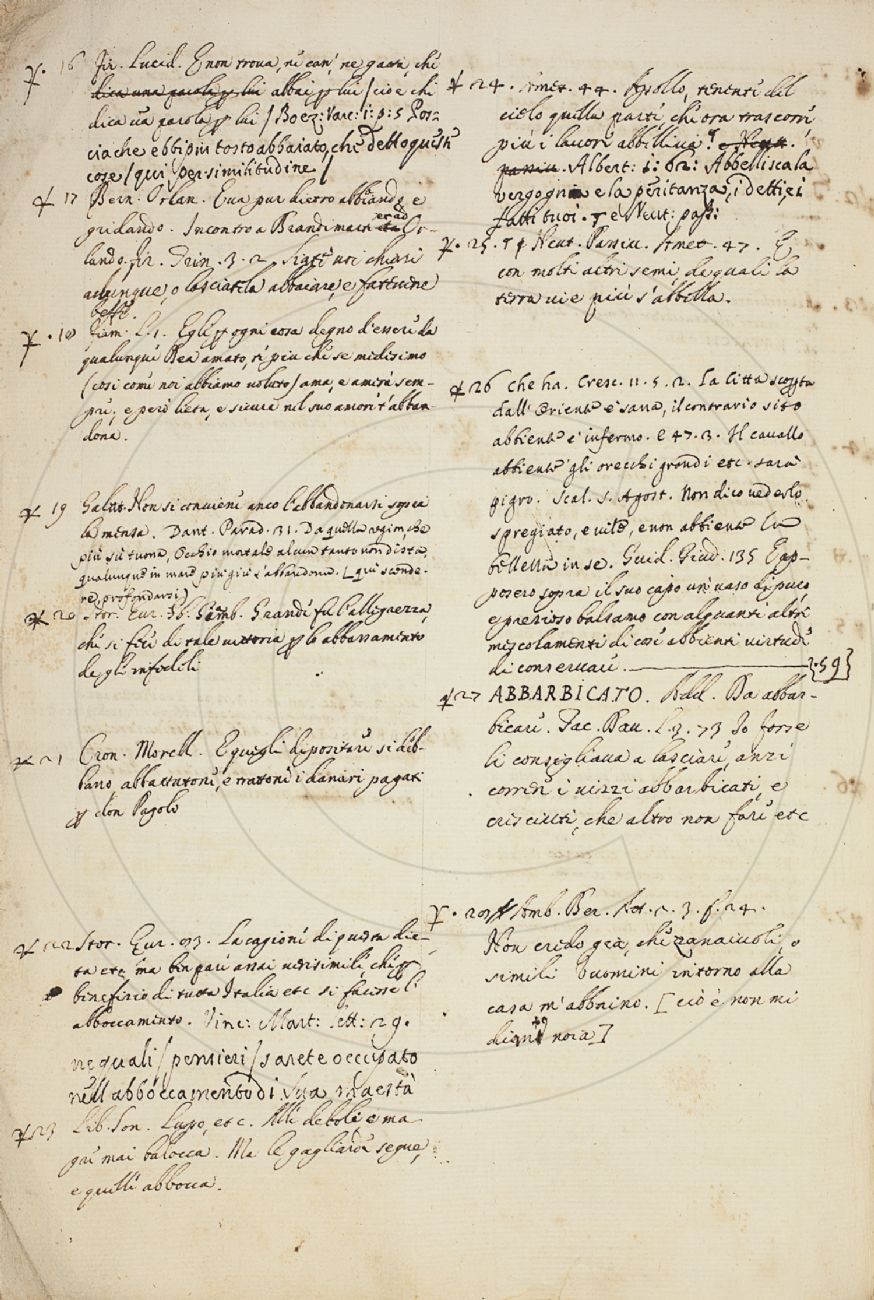 16 Fir. Lucid. E non trova, ne can', ne gatta, chi
dica una parola p lui abbai p lui / cioè chi
dica ūa parola p lui / Boez: Varc: 1: p: 5 Por-
cia che ebbi piu tosto abbaiato, che detto queste
cose / qui per similitudine /
17 Bern: Orlan. Eva pur dietro abbiando e
gridando. Incontro a Brandimarte ed Or-
lando. Fir. Trin. 3. 2.
adunque, o lasciatela abbaiare, e fatevene
beffe
18 Fiam. L. 1. Egli p ogni cosa degno d'esseri da
qualunqui Dea amato, ti piu chi se midisimo
/ cosi comi noi abbiamo voluto / ama, e amirà sem-
pri; e però lieta, e sicura nel suo amori t'abban-
dona.
19 Galat. Non si convieni anco l'abbandonarsi sopra
la mensa. Dant. Parad. 31. Da quella region, che
più sù tuona, Occhio mortale alcun tanto non dista,
qualunque in mare più giù s'abbandona. [qui scende-
re, profondarsi]
20 Stor. Eur. Grandi fu l'alligrezza,
chi si feci di tale vittoria p lo abbassamento
degli infedeli
21 Cron. Morell. E quegli dipositari si deb-
bano, abbattutoni, e trattoni i danari pagati
p don Pagolo
22 Stor. Eur. 93. La cagioni di questa die-
ta etc ma ben pari assai verisimili, chi p
benefizio di tutta Italia etc si facisse l'
abboccamento. Vinc: Mart: lett: 29.
ne quali / pensieri / sarete occupato
nell'abboccamento di Sua Maestà
23 Lib. Son. Lupo, etc. Alli deboli e ma-
gri mai balocca. Ma le gagliardi segue,
e quelli abbocca.
24. Amet. 44. Apollo, tenenti del
cielo quella parti, chi ora trascorri
piu i lavori abbilliva. e Neut.
passiu. Albert: 1: 62: Abbellisca la
vergogna e la penitanza, i detti, e i
fatti tuoi. e Neut: pass:
25. Neut. Passiu. Amet. 47. E
con molti altri semi, de quali la
terra vie più s'abbella.
26 che ha. Cresc. 11. 5. 2. La Città scoperta
dall'Oriente è sana, il contrario sito
abbiente è infermo. E 47. 3. Il cavallo
abbiente gli orecchi grandi etc. sarà
pigro. Scal. S. Agost. Non dico vederlo
spregiato, e vile, e non abbiente
bellezza in se. Guid. Giud. 135 E ap-
posero sopra il suo capo un vaso di puro
e prezioso balsamo con alquanti altri
miscolamenti di cosi abbienti virtudi
di conservari. {59}
27 ABBARBICATO. Add. Da abbar-
bicari. Fac. Dav. L. 2. 73 Io forse
li consigliava a lasciari, anzi
correri i vizzi abbarbicati, e
cresciuti, che altro non fari etc
Amb. Ber. At. 3. f. 24.
Non credo già, chi zanaiuoli, o
simili huomini intorno alla
casa m'abbaino. [ciò è non mi
noia]